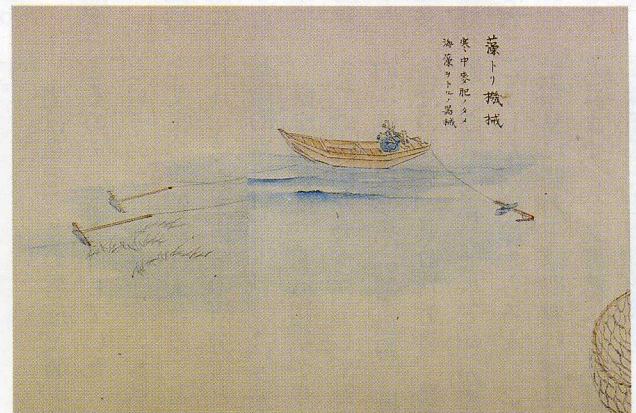 藻トリ機械
寒中麥肥ノタメ
海藻ヲトルノ器械